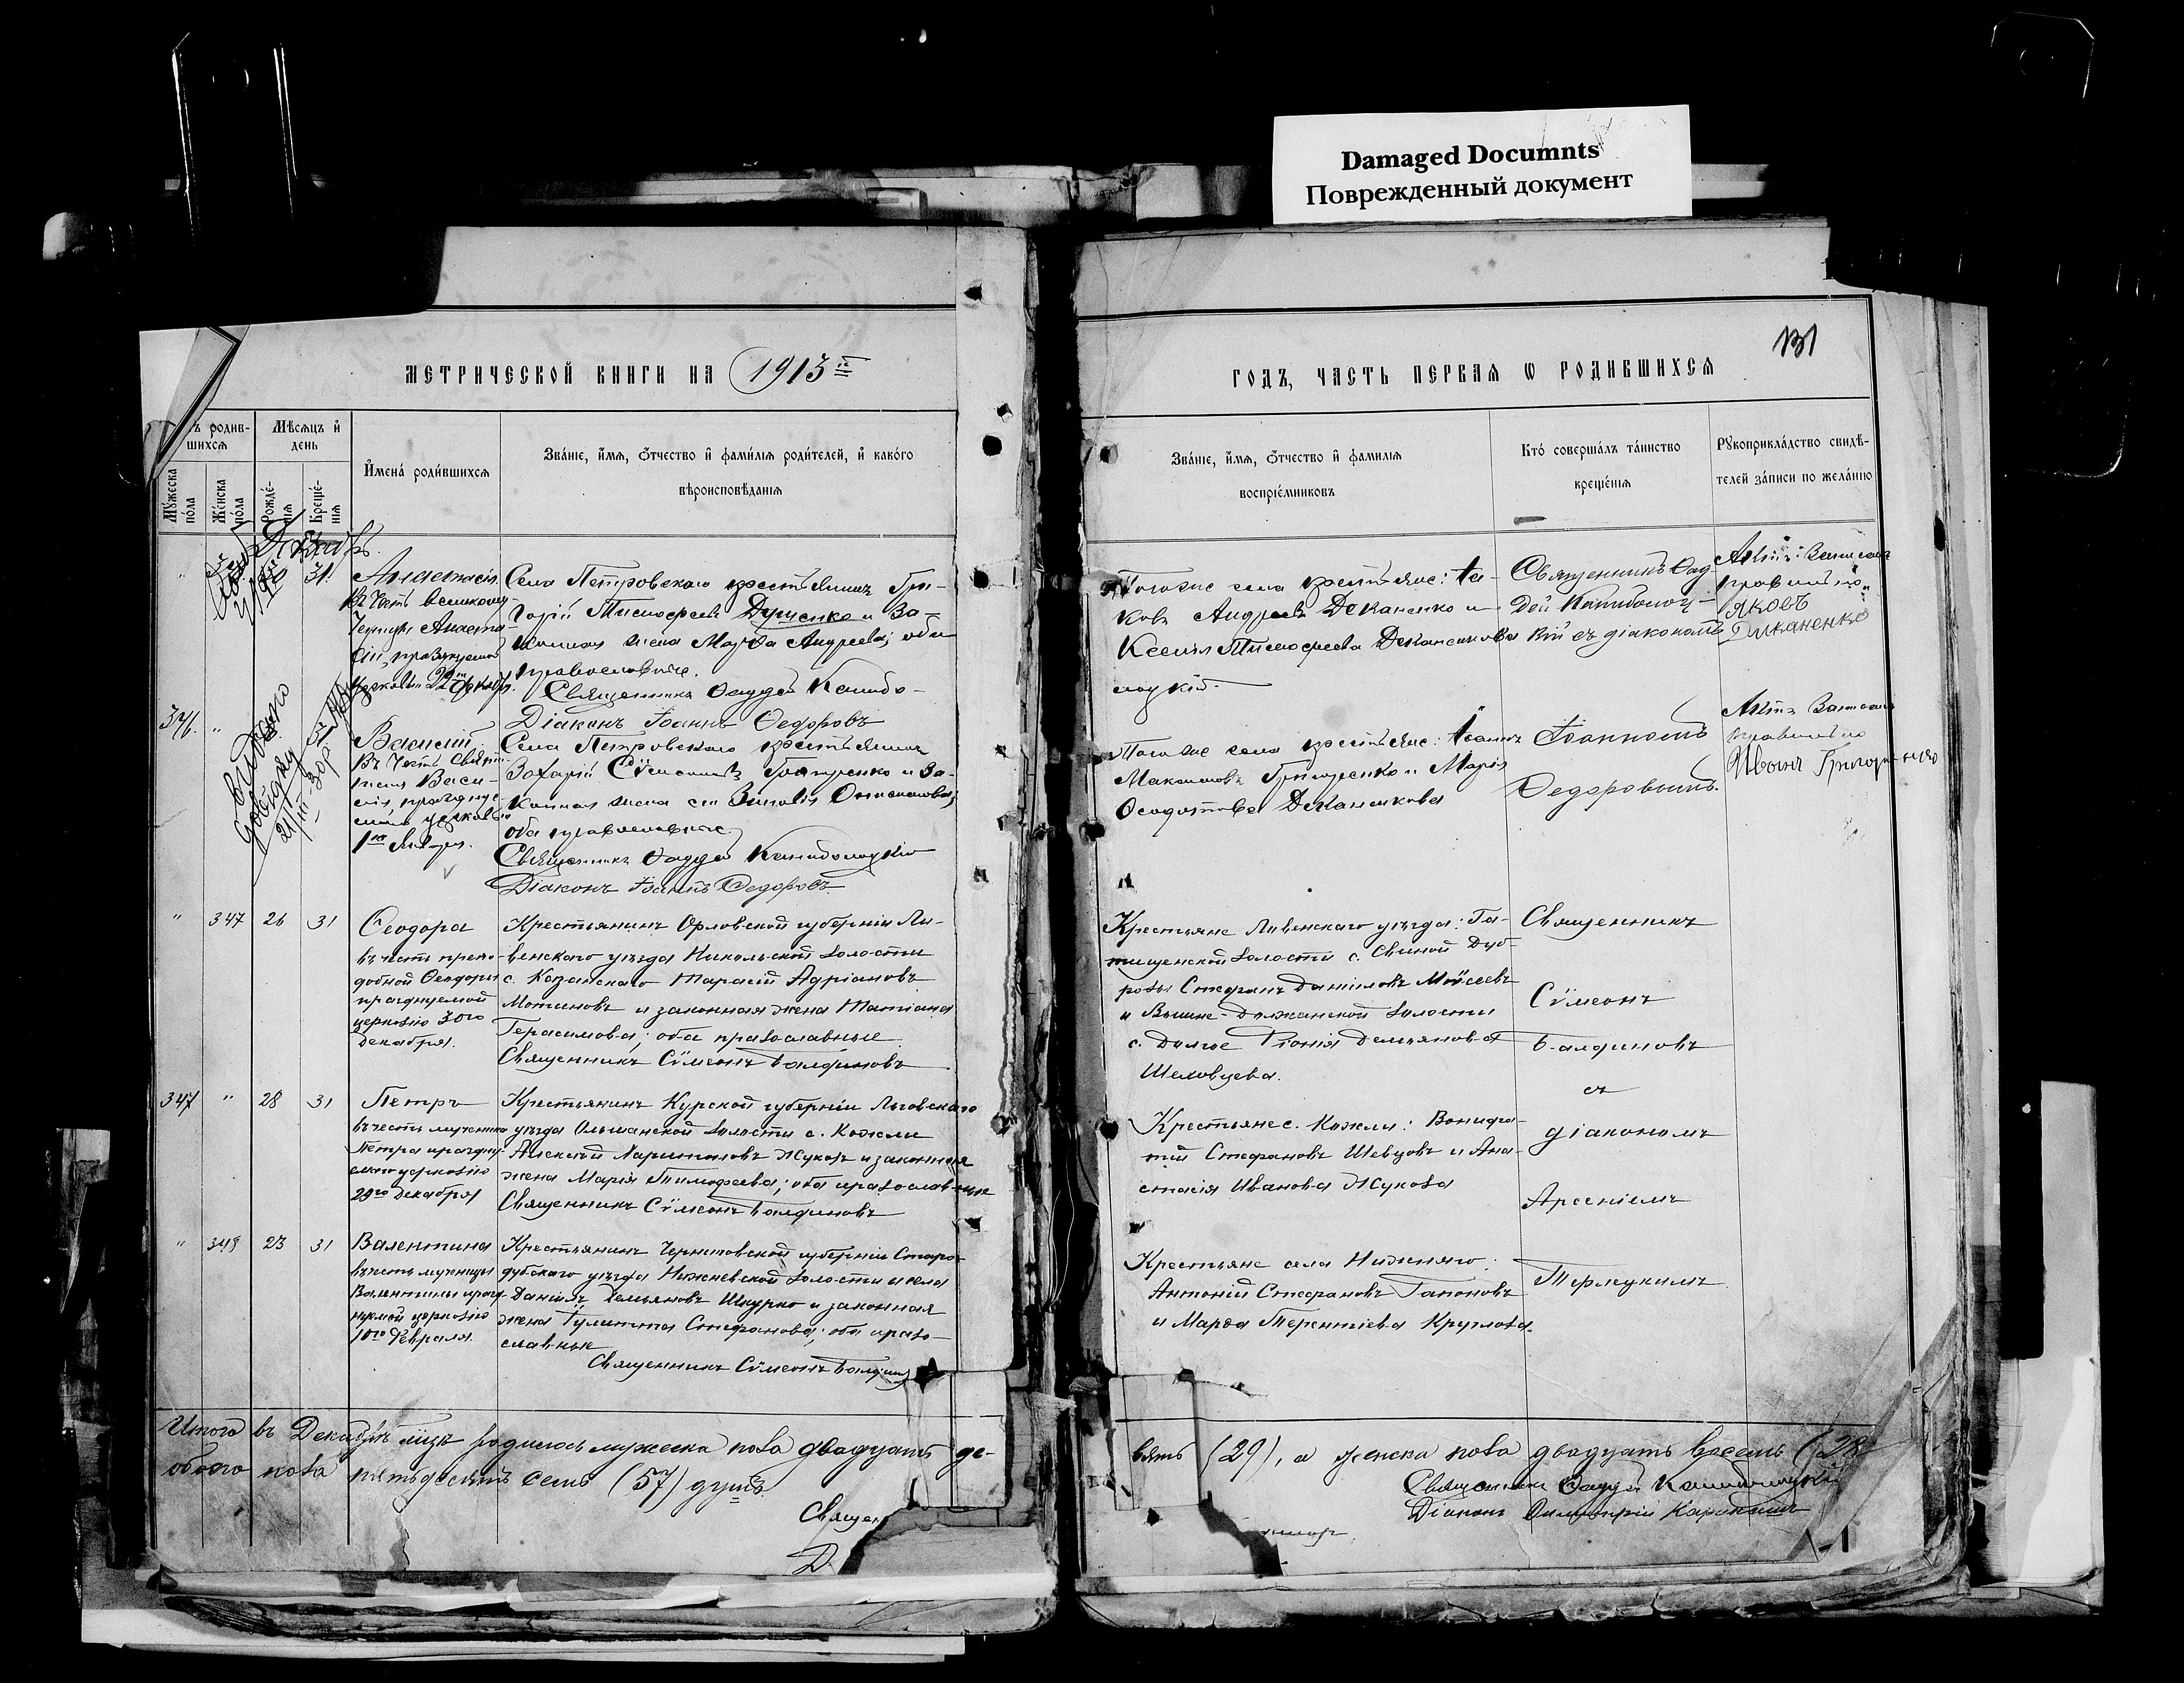 Damaged Documnts
Поврежденный документ
131
МЕТРИЧЕСКОЙ КНИГИ НА 1913й
ГОДЪ, ЧАСТЬ ПЕРВАЯ Ѡ РОДИВШИХСЯ
ъ родив-
шихся
Мужеска пола
Женска пола
Мѣсяцъ и день
Рожде-
нія
Креще-
нія
Имена родившихся
Званіе, имя, ѿчество и фамилія родителей, и какого
вѣроисповѣданія
Званіе, имя, ѿчество и фамилія
воспріемниковъ
Кто совершалъ таинство
крещенія
Рукоприкладство свидѣ-
телей записи по желанію
31.
Анастасія.
въ честь великому-
ченицы Анаста-
сіи, празднуемой
церковью 22го Декабр.
Села Петровскаго крестьянинъ Гри-
горій Тимофеевъ Дуценко и за-
конная жена Марѳа Андреева; оба
православные.
Священникъ Ѳаддей Канибо-
Діаконъ Іоаннъ Ѳедоровъ
Тогоже села крестьяне: Іа-
ковъ Андреевъ Деканенко и
Ксенія Тимофеева Деканенкова
Священникъ Ѳад-
дей Каниболоц-
кій съ діакономъ
лоцкій.
Актъ записанъ
правильно
Яковъ
Диканенко
346.
"
31
Василій
въ честь святи-
теля Васи-
лія, праздну-
емаго церковью
1го Января.
Села Петровскаго крестьянинъ
Захарій Сѵмеоновъ Григоренко и за-
конная жена его Зиновія Онисимова;
оба православные.
Священникъ Ѳаддей Каниболоцкій
Діаконъ Іоаннъ Ѳедоровъ.
Тогоже села крестьяне: Іоаннъ
Максимовъ Григоренко и Марія
Ѳеодотова Деканенкова
Іоанномъ
Ѳедоровымъ.
Актъ записанъ
правильно
Иванъ Григоренко
"
347
26
31
Ѳеодора
въ честь препо-
добной Ѳеодоры
празднуемой
церковію 30го
Декабря.
Крестьянинъ Орловской губерніи Ли-
венскаго уѣзда Никольской волости
с. Казанскаго Тарасій Адріановъ
Мотиновъ и законная жена Татіана
Герасимова; оба православные.
Священникъ Сѵмеонъ Балдиновъ
Крестьяне Ливенскаго уѣзда: Га-
тищенской волости с. Свиной Дуб-
ровы Стефанъ Даніиловъ Моѵсеевъ
и Вышне-Должанской волости
с. Долгое Ѳіонія Демьянова
Шеховцева.
Священникъ
Сѵмеонъ
Балдиновъ
съ
діакономъ
Арсеніемъ
Терлецкимъ
347
"
28
31
Петръ
въ честь мученика
Петра праздну-
емаго церковію
29го Декабря
Крестьянинъ Курской губерніи Льговскаго
уѣзда Ольшанской волости с. Кожли
Алексѣй Харитоновъ Жуковъ и законная
жена Марія Тимофеева; оба православные
Священникъ Сѵмеонъ Балдиновъ
Крестьяне с. Кожли: Вонифа-
тій Стефановъ Шевцовъ и Ана-
стасія Иванова Жукова
"
348
23
31
Валентина
въ честь мученицы
Валентины празд-
нуемой церковію
10го Февраля.
Крестьянинъ Черниговской губерніи Старо-
дубскаго уѣзда Нижневской волости и села
Даніилъ Демьяновъ Шкурко и законная
жена Іулитта Стефанова; оба право-
славные
Священникъ Сѵмеонъ Балдинов
Крестьяне села Нижняго:
Антоній Стефановъ Гапоновъ
и Марѳа Терентіева Круглова.
Итого въ Декабрѣ мцѣ родилось мужеска пола двадцать де-
вять (29), а женска пола двадцать восемь (28
обоего пола пятьдесятъ семь (57) душъ.
Священникъ Ѳаддей Каниболоцкій
Діаконъ Димитрій
Священ
Д